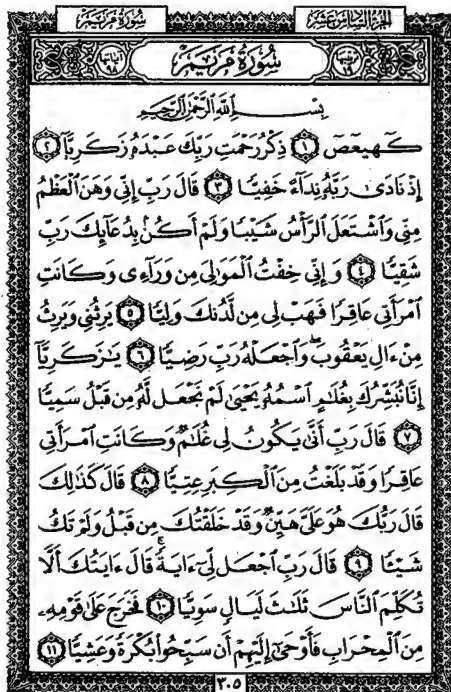 سُورَةُ مَرْيَم الجزء السادس عشر
سُورَةُ مَرْيَمَ
بِسْمِ ٱللَّهِ ٱلرَّحْمَٰنِ ٱلرَّحِيمِ
كٓهيعٓصٓ ١ ذِكْرُ رَحْمَتِ رَبِّكَ عَبْدَهُۥ زَكَرِيَّآ ٢
إِذْ نَادَىٰ رَبَّهُۥ نِدَآءً خَفِيًّا ٣ قَالَ رَبِّ إِنِّى وَهَنَ ٱلْعَظْمُ
مِنِّى وَٱشْتَعَلَ ٱلرَّأْسُ شَيْبًا وَلَمْ أَكُنۢ بِدُعَآئِكَ رَبِّ
شَقِيًّا ٤ وَإِنِّى خِفْتُ ٱلْمَوَٰلِىَ مِن وَرَآءِى وَكَانَتِ
ٱمْرَأَتِى عَاقِرًا فَهَبْ لِى مِن لَّدُنكَ وَلِيًّا ٥ يَرِثُنِى وَيَرِثُ
مِنْ ءَالِ يَعْقُوبَ ۖ وَٱجْعَلْهُ رَبِّ رَضِيًّا ٦ يَٰزَكَرِيَّآ
إِنَّا نُبَشِّرُكَ بِغُلَٰمٍ ٱسْمُهُۥ يَحْيَىٰ لَمْ نَجْعَل لَّهُۥ مِن قَبْلُ سَمِيًّا
٧ قَالَ رَبِّ أَنَّىٰ يَكُونُ لِى غُلَٰمٌ وَكَانَتِ ٱمْرَأَتِى
عَاقِرًا وَقَدْ بَلَغْتُ مِنَ ٱلْكِبَرِ عِتِيًّا ٨ قَالَ كَذَٰلِكَ
قَالَ رَبُّكَ هُوَ عَلَىَّ هَيِّنٌ وَقَدْ خَلَقْتُكَ مِن قَبْلُ وَلَمْ تَكُ
شَيْـًٔا ٩ قَالَ رَبِّ ٱجْعَل لِّىٓ ءَايَةً ۚ قَالَ ءَايَتُكَ أَلَّا
تُكَلِّمَ ٱلنَّاسَ ثَلَٰثَ لَيَالٍ سَوِيًّا ١٠ فَخَرَجَ عَلَىٰ قَوْمِهِۦ
مِنَ ٱلْمِحْرَابِ فَأَوْحَىٰٓ إِلَيْهِمْ أَن سَبِّحُوا۟ بُكْرَةً وَعَشِيًّا ١١
٣٠٥